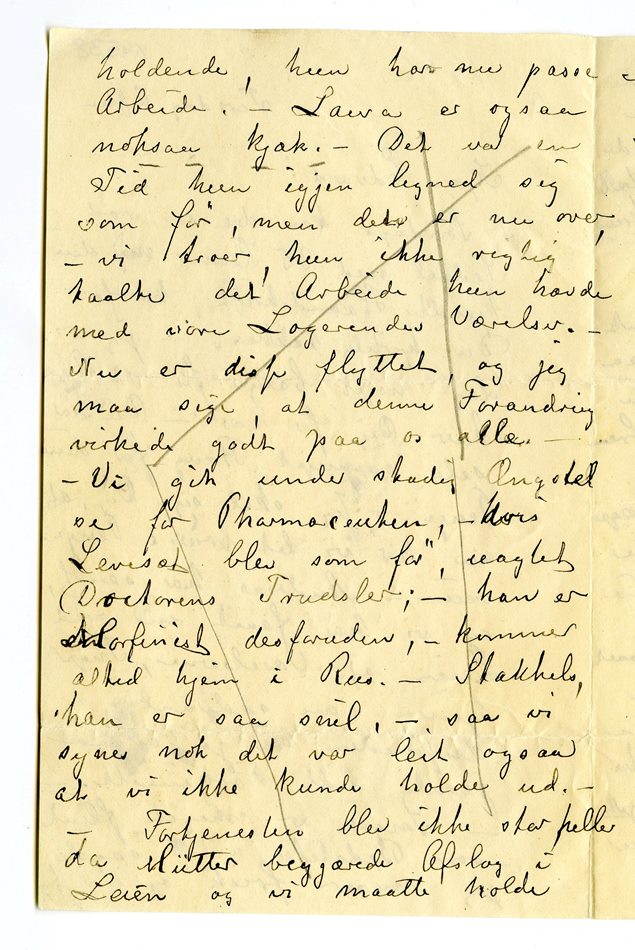 holdende, hun har nu passe
Arbeide. – Laura er ogsaa
noksaa kjæk. – Det var en
Tid hun igjen legned sig
som før, men det er nu over,
– vi troer, hun ikke rigtig
taalte det Arbeide hun havde
med vore Logerendes Værelser. –
Nu er disse flyttet, og jeg
maa sige, at denne Forandring
virkede godt paa os alle. –
– Vi gik under stadig Ængstel
se for Pharmaceuten, – hvis
Levesæt blev som før, uagtet
Doctorens Trudsler; – han er
Morfinist desforuden, – kommer
altid hjem i Rus. – Stakkels,
han er saa snil, – saa vi
synes nok det var leit ogsaa
at vi ikke kunde holde ud. –
– Fortjenesten blev ikke stor heller
da Mütter begjærede Afslag i
Leien og vi maatte holde